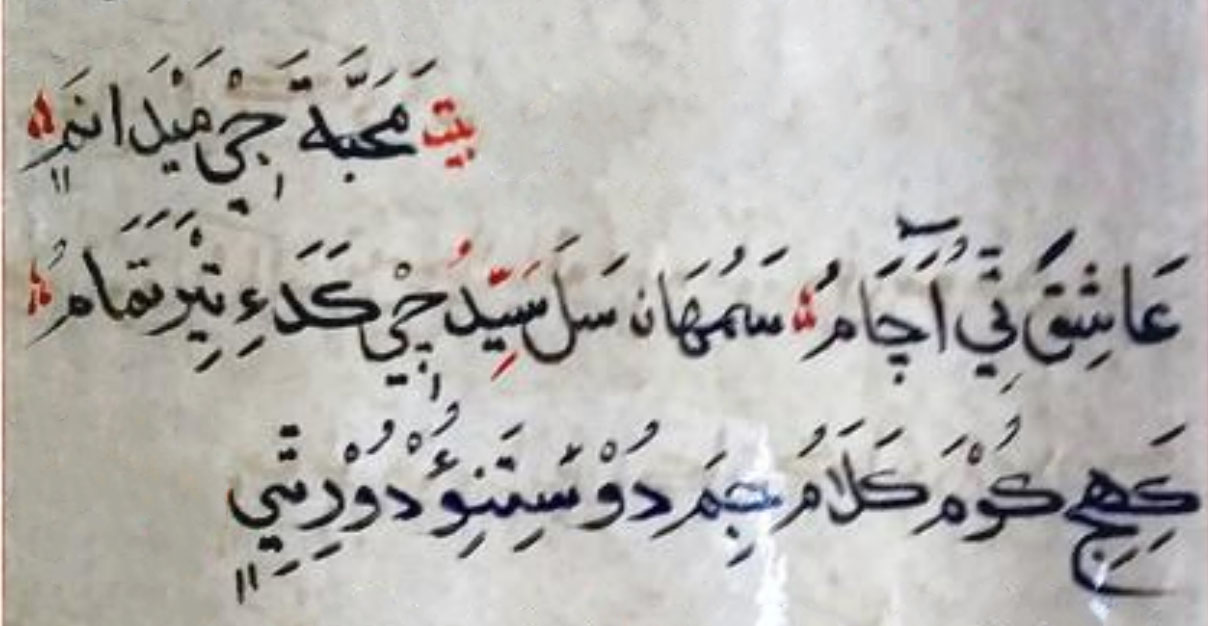 بيت مَحَبَّةَ جِيْ مَيْدَانَمِ
عَاشِقَ تِي آچَامُ سَمُهَان سَلَ سَيِّدُ جِيْ كَدَءِ تِيْرَ تَمَامُ
كَهِجِ كُوْمَ كَلَامُ جِمَ دُوْسَتَنِئُو دُوْرِ تِي